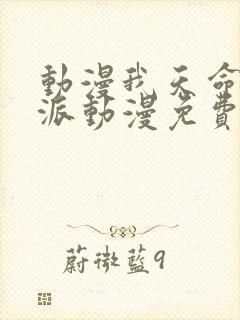 動漫我天命
派動漫免費
蔚微藍9